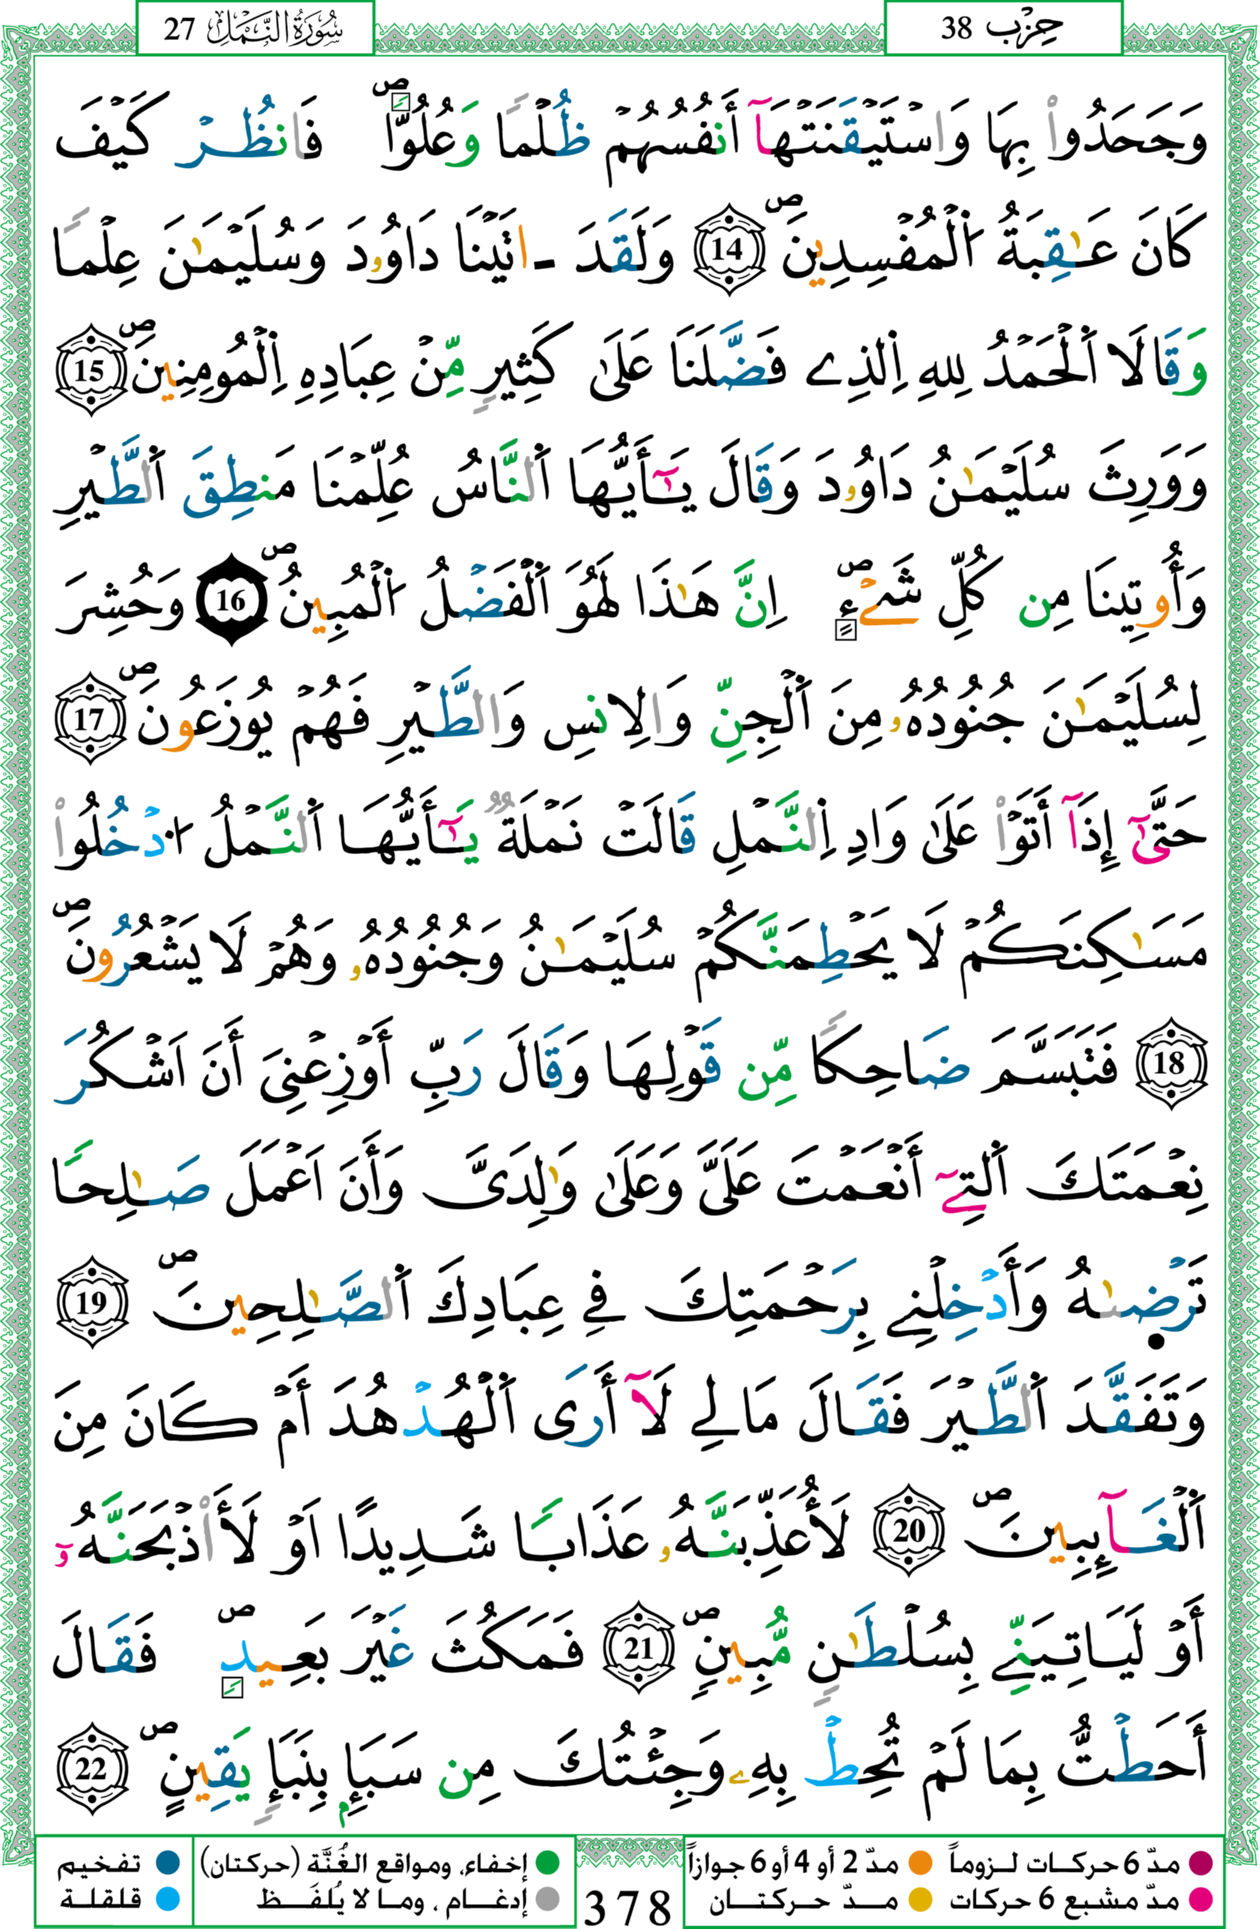 حِزْب 38 سُورَةُ النَّمْلِ 27
وَجَحَدُواْ بِهَا وَاسْتَيْقَنَتْهَآ أَنفُسُهُمْ ظُلْماً وَعُلُوّاًۖ فَانظُرْ كَيْفَ
كَانَ عَٰقِبَةُ اُ۬لْمُفْسِدِينَۖ 14 وَلَقَدَ اٰتَيْنَا دَاوُۥدَ وَسُلَيْمَٰنَ عِلْماً
وَقَالَا اَ۬لْحَمْدُ لِلهِ اِ۬لذِے فَضَّلَنَا عَلَىٰ كَثِيرٍ مِّنْ عِبَادِهِ اِ۬لْمُومِنِينَۖ 15
وَوَرِثَ سُلَيْمَٰنُ دَاوُۥدَ وَقَالَ يَٰٓأَيُّهَا اَ۬لنَّاسُ عُلِّمْنَا مَنطِقَ اَ۬لطَّيْرِ
وَأُوتِينَا مِن كُلِّ شَےْءٍۖ اِنَّ هَٰذَا لَهُوَ اَ۬لْفَضْلُ اُ۬لْمُبِينُۖ 16 وَحُشِرَ
لِسُلَيْمَٰنَ جُنُودُهُۥ مِنَ اَ۬لْجِنِّ وَالِانسِ وَالطَّيْرِ فَهُمْ يُوزَعُونَۖ 17
حَتَّىٰٓ إِذَآ أَتَوْاْ عَلَىٰ وَادِ اِ۬لنَّمْلِ قَالَتْ نَمْلَةٌ يَٰٓأَيُّهَا اَ۬لنَّمْلُ اُ۟دْخُلُواْ
مَسَٰكِنَكُمْ لَا يَحْطِمَنَّكُمْ سُلَيْمَٰنُ وَجُنُودُهُۥ وَهُمْ لَا يَشْعُرُونَۖ
18 فَتَبَسَّمَ ضَاحِكاً مِّن قَوْلِهَا وَقَالَ رَبِّ أَوْزِعْنِيَ أَنَ اَشْكُرَ
نِعْمَتَكَ اَ۬لتِےٓ أَنْعَمْتَ عَلَيَّ وَعَلَىٰ وَٰلِدَيَّ وَأَنَ اَعْمَلَ صَٰلِحاً
تَرْضَىٰهُ وَأَدْخِلْنِے بِرَحْمَتِكَ فِے عِبَادِكَ اَ۬لصَّٰلِحِينَۖ 19
وَتَفَقَّدَ اَ۬لطَّيْرَ فَقَالَ مَالِے لَآ أَرَى اَ۬لْهُدْهُدَ أَمْ كَانَ مِنَ
اَ۬لْغَآئِبِينَۖ 20 لَأُعَذِّبَنَّهُۥ عَذَاباً شَدِيداً اَوْ لَأَاْذْبَحَنَّهُۥٓ
أَوْ لَيَاتِيَنِّے بِسُلْطَٰنٍ مُّبِينٍۖ 21 فَمَكُثَ غَيْرَ بَعِيدٍۖ فَقَالَ
أَحَطتُّ بِمَا لَمْ تُحِطْ بِهِۦ وَجِئْتُكَ مِن سَبَإِۢ بِنَبَإٍ يَقِينٍۖ 22
مدّ 6 حركات لـزوماً مدّ 2 أو 4 أو 6 جوازاً إخفاء، ومواقع الغُنَّة (حركتان) تفخيم
مدّ مشبع 6 حركات مــدّ حركتــان 378 إدغام ، وما لا يُلفَـظ قلقلة